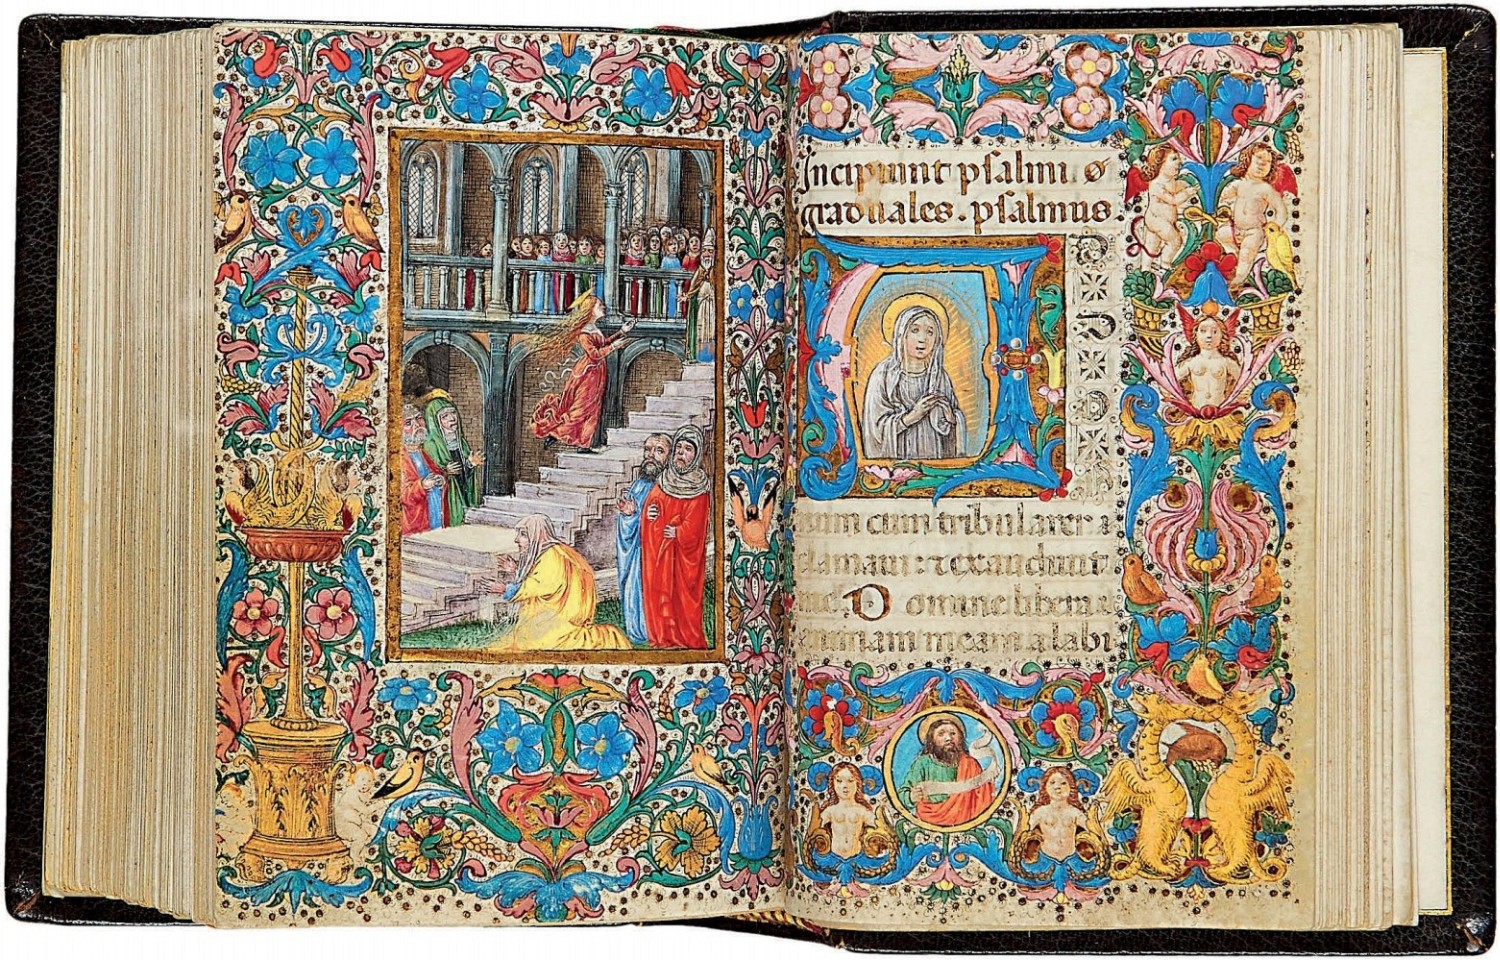 Incipiunt psalmi
graduales. psalmus.
num cum tribularer
clamaui: ⁊ exaudiuit
me. Domine libera a
nimam meam a labi